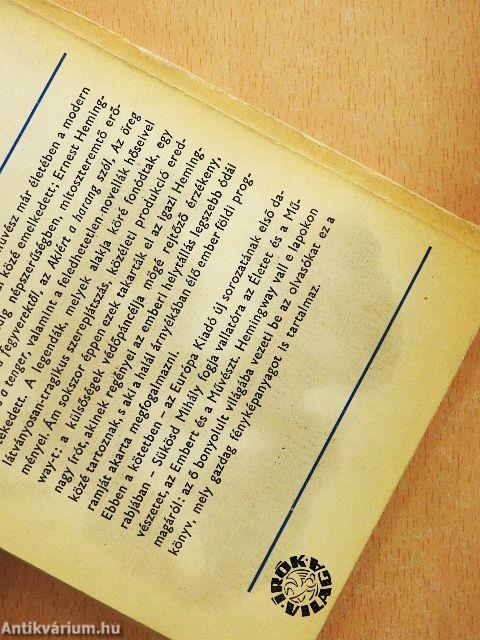 űvész már életében a modern
i közé emelkedett; Ernest Heming-
dig népszerűségben, mítoszteremtő erő-
a fegyverektől, az Akiért a harang szól, Az öreg
a tenger, valamint a feledhetetlen novellák hőseivel
tekedett. A legendák, melyek alakja köré fonódtak, egy
látványosan-tragikus szereplátszás, közéleti produkció ered-
ményei. Ám sokszor éppen ezek takarták el az igazi Heming-
way-t: a külsőségek védőpáncélja mögé rejtőző érzékeny,
nagy írót, akinek regényei az emberi helytállás legszebb ódái
közé tartoznak, s aki a halál árnyékában élő ember földi prog-
ramját akarta megfogalmazni.
Ebben a kötetben – az Európa Kiadó új sorozatának első da-
rabjában – Sükösd Mihály fogja vallatóra az Életet és a Mű-
vészetet, az Embert és a Művészt. Hemingway vall e lapokon
magáról: az ő bonyolult világába vezeti be az olvasókat ez a
könyv, mely gazdag fényképanyagot is tartalmaz.
ÍRÓK VILÁGA
Antikvárium.hu